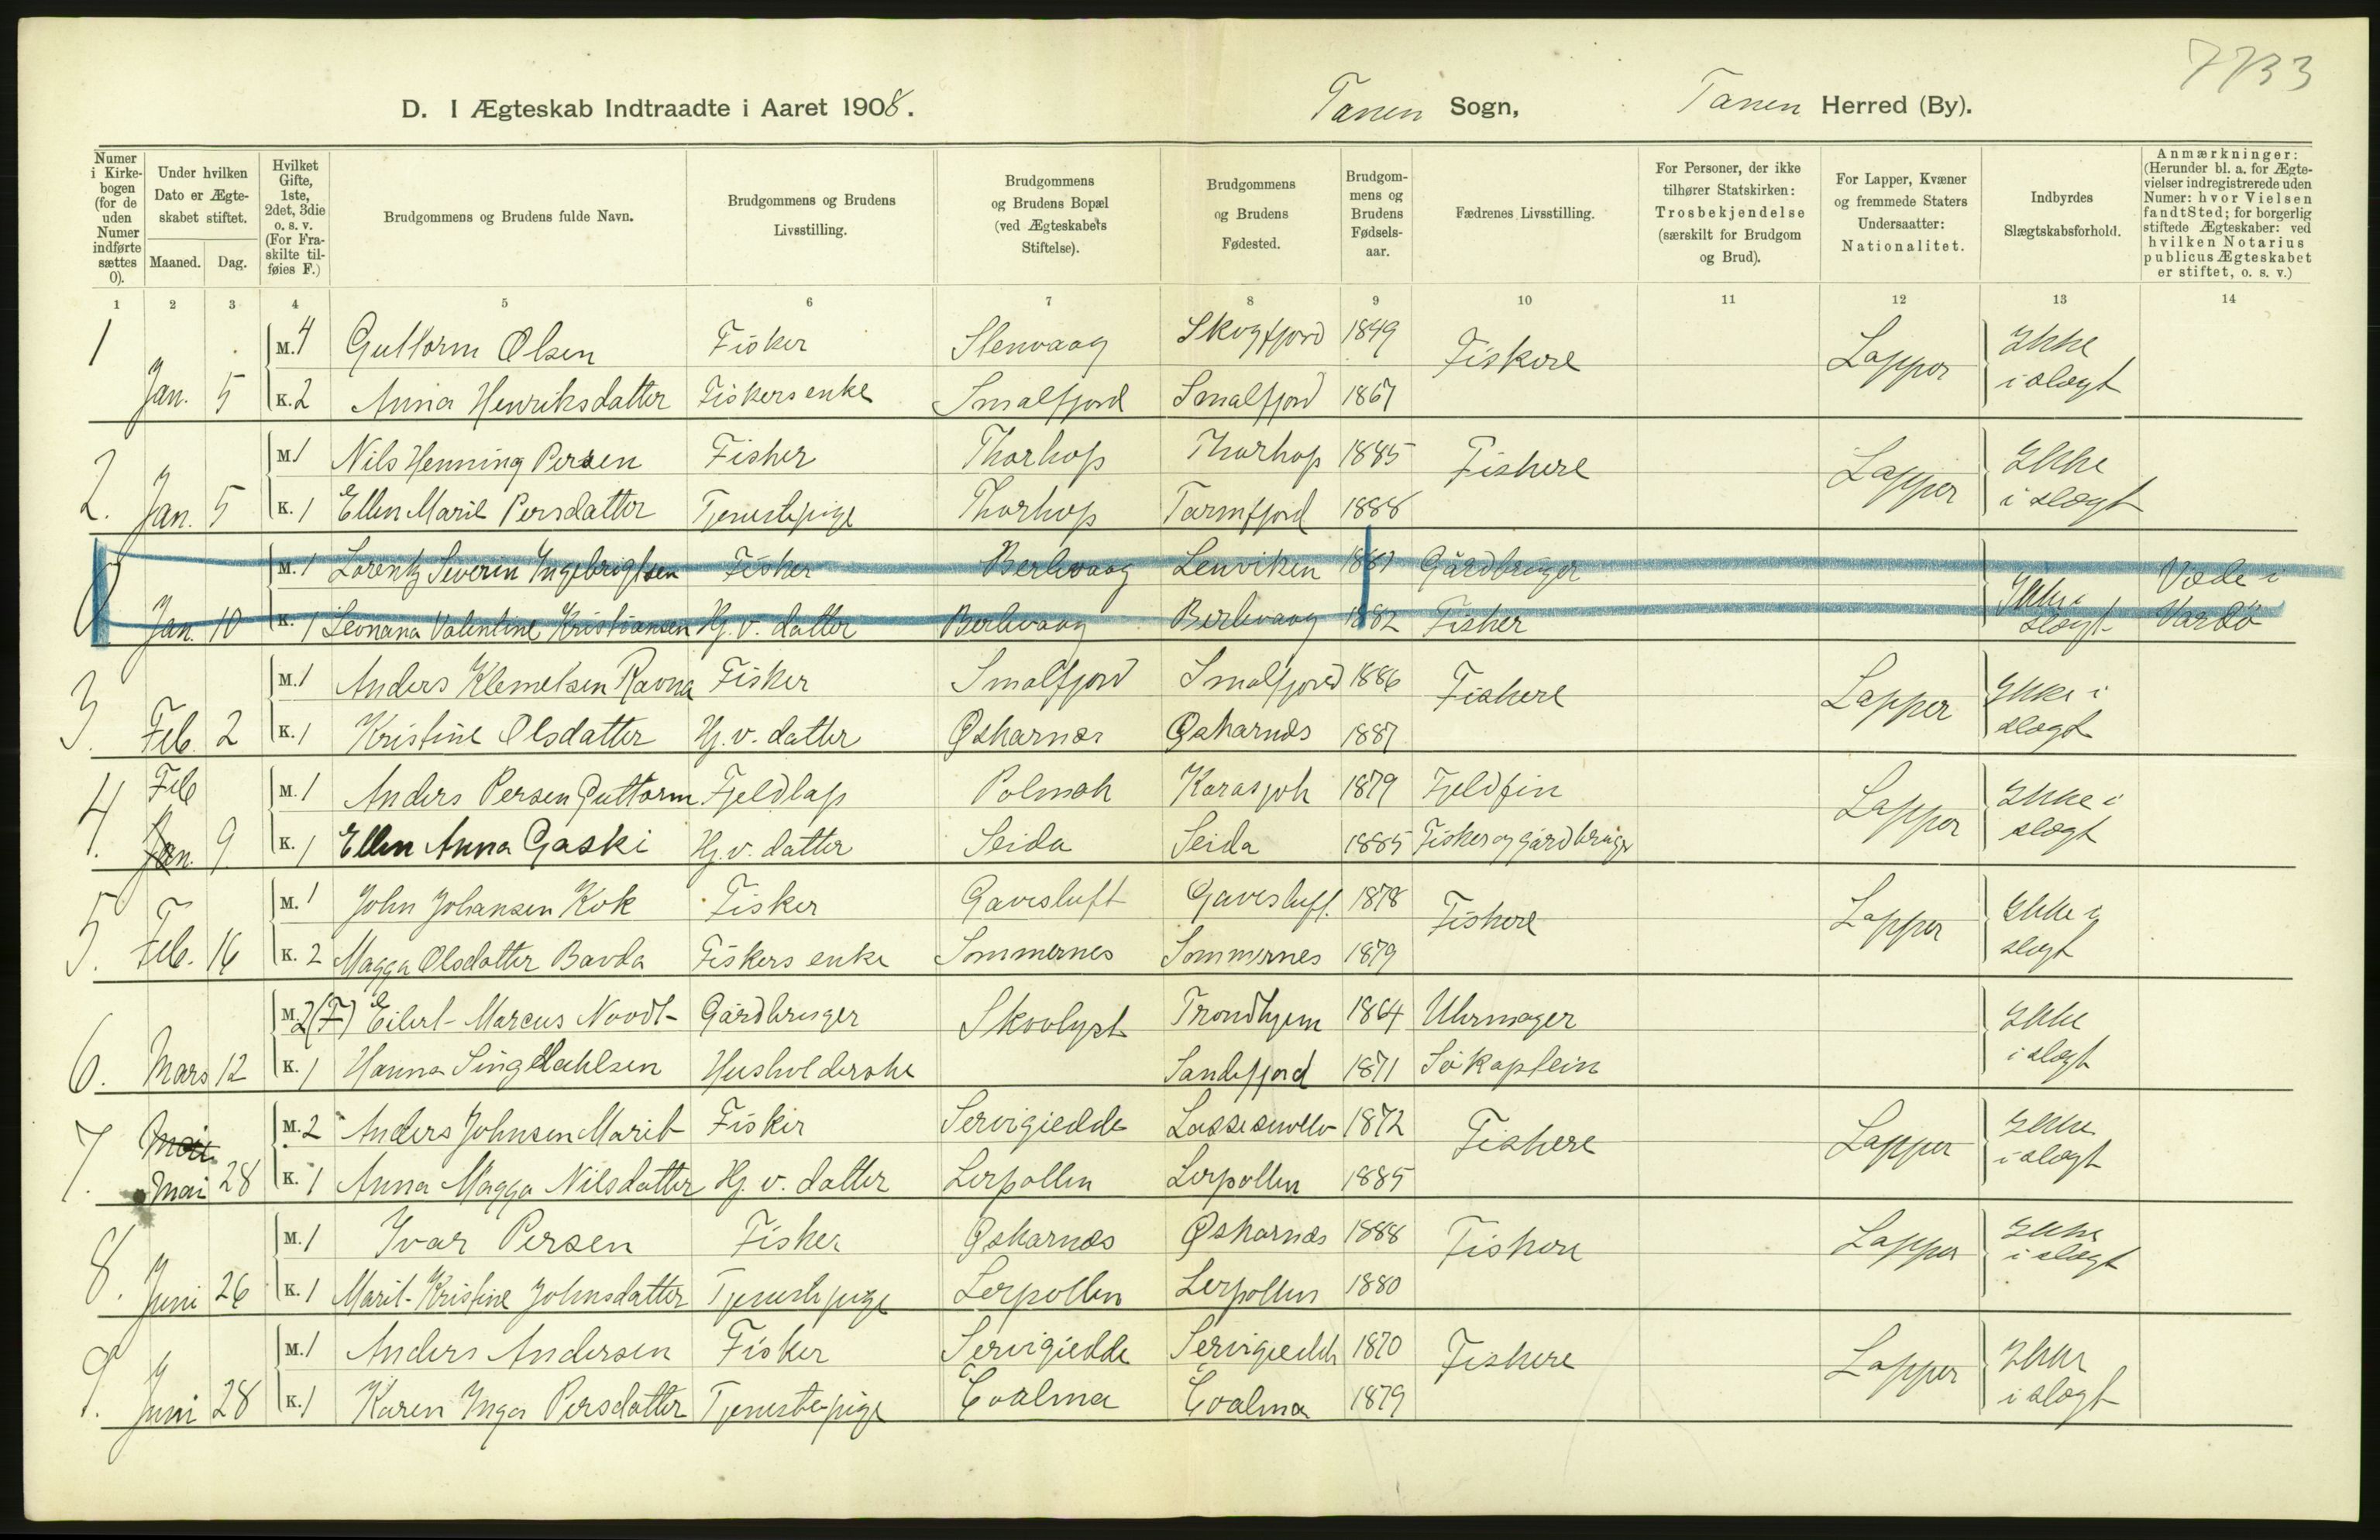 7733
D. I Ægteskab Indtraadte i Aaret 1908. Tanen Sogn, Tanen Herred (By).
Numer i Kirkebogen (for de uden Numer indførte sættes 0).
Under hvilken Dato er Ægteskabet stiftet.
Maaned. Dag.
Hvilket Gifte, 1ste, 2det, 3die o. s. v. (For Fraskilte tilføies F.)
Brudgommens og Brudens fulde Navn.
Brudgommens og Brudens Livsstilling.
Brudgommens og Brudens Bopæl (ved Ægteskabets Stiftelse).
Brudgommens og Brudens Fødested.
Brudgommens og Brudens Fødselsaar.
Fædrenes Livsstilling.
For Personer, der ikke tilhører Statskirken: Trosbekjendelse (særskilt for Brudgom og Brud).
For Lapper, Kvæner og fremmede Staters Undersaatter: Nationalitet.
Indbyrdes Slægtskabsforhold.
Anmærkninger: (Herunder bl. a. for Ægtevielser indregistrerede uden Numer: hvor Vielsen fandt Sted; for borgerlig stiftede Ægteskaber: ved hvilken Notarius publicus Ægteskabet er stiftet, o. s. v.)
1 2 3 4 5 6 7 8 9 10 11 12 13 14
1 M. 4 Guttorm Olsen Fisker Stenvaag Skogfjord 1849 Fiskere Lapper Ikke
Jan. 5 K. 2 Anna Henriksdatter Fiskers enke Smalfjord Smalfjord 1867 i slægt
2. M. 1 Nils Henning Persen Fisker Thorhop Thorhop 1885 Fiskere Lapper Ikke
Jan. 5 K. 1 Ellen Marie Persdatter Tjenestepige Thorhop Tarmfjord 1888 i slægt
0 M. 1 Lorentz Severin Ingebrigtsen Fisker Berlevaag Lenviken 1881 Gårdbruger Viede i
Jan. 10 K. 1 Leonana Valentine Kristiansen Hj. v. datter Berlevaag Berlevaag 1882 Fisker Ikke i slægt Vardö
3. M. 1 Anders Klemetsen Ravna Fisker Smalfjord Smalfjord 1886 Fiskere Lapper Ikke i
Feb. 2 K. 1 Kristine Olsdatter Hj. v. datter Østarnæs Østarnæs 1887 slægt
4. Feb M. 1 Anders Persen Guttorm Fjeldlap Polmak Karasjok 1879 Fjeldfin Lapper Ikke i
Jan. 9 K. 1 Ellen Anna Gaski Hj. v. datter Seida Seida 1885 Fisker og gårdbruger slægt
5. M. 1 John Johansen Kok Fisker Gavesluft Gavesluft 1878 Fiskere Lapper Ikke i
Feb. 16 K. 2 Magga Olsdatter Bavda Fiskers enke Sommernes Sommernes 1879 slægt
M. 2 (F) Eilert Marcus Noodt Gårdbruger Skovlyst Trondhjem 1864 Uhrmager Ikke
6. Mars 12 K. 1 Hanna Sing Dahlsen Husholderske Sandefjord 1871 Søkaptein i slægt
7. Mai M. 2 Anders Johnsen Marit Fisker Servigiedde 1872 Fiskere Lapper Ikke
Mai 28 K. 1 Anna Magga Nilsdatter Hj. v. datter Lerpollen Lerpollen 1885 i slægt
8. M. 1 Ivar Persen Fisker Østarnæs Østarnæs 1888 Fiskere Lapper Ikke
Juni 26 K. 1 Marit Kristine Johnsdatter Tjenestepige Lerpollen Lerpollen 1880 i slægt
9. M. 1 Anders Andersen Fisker Servigiedde Servigiedde 1870 Fiskere Lapper Ikke
Juni 28 K. 1 Karen Inga Persdatter Tjenestepige Coalma Coalma 1879 i slægt